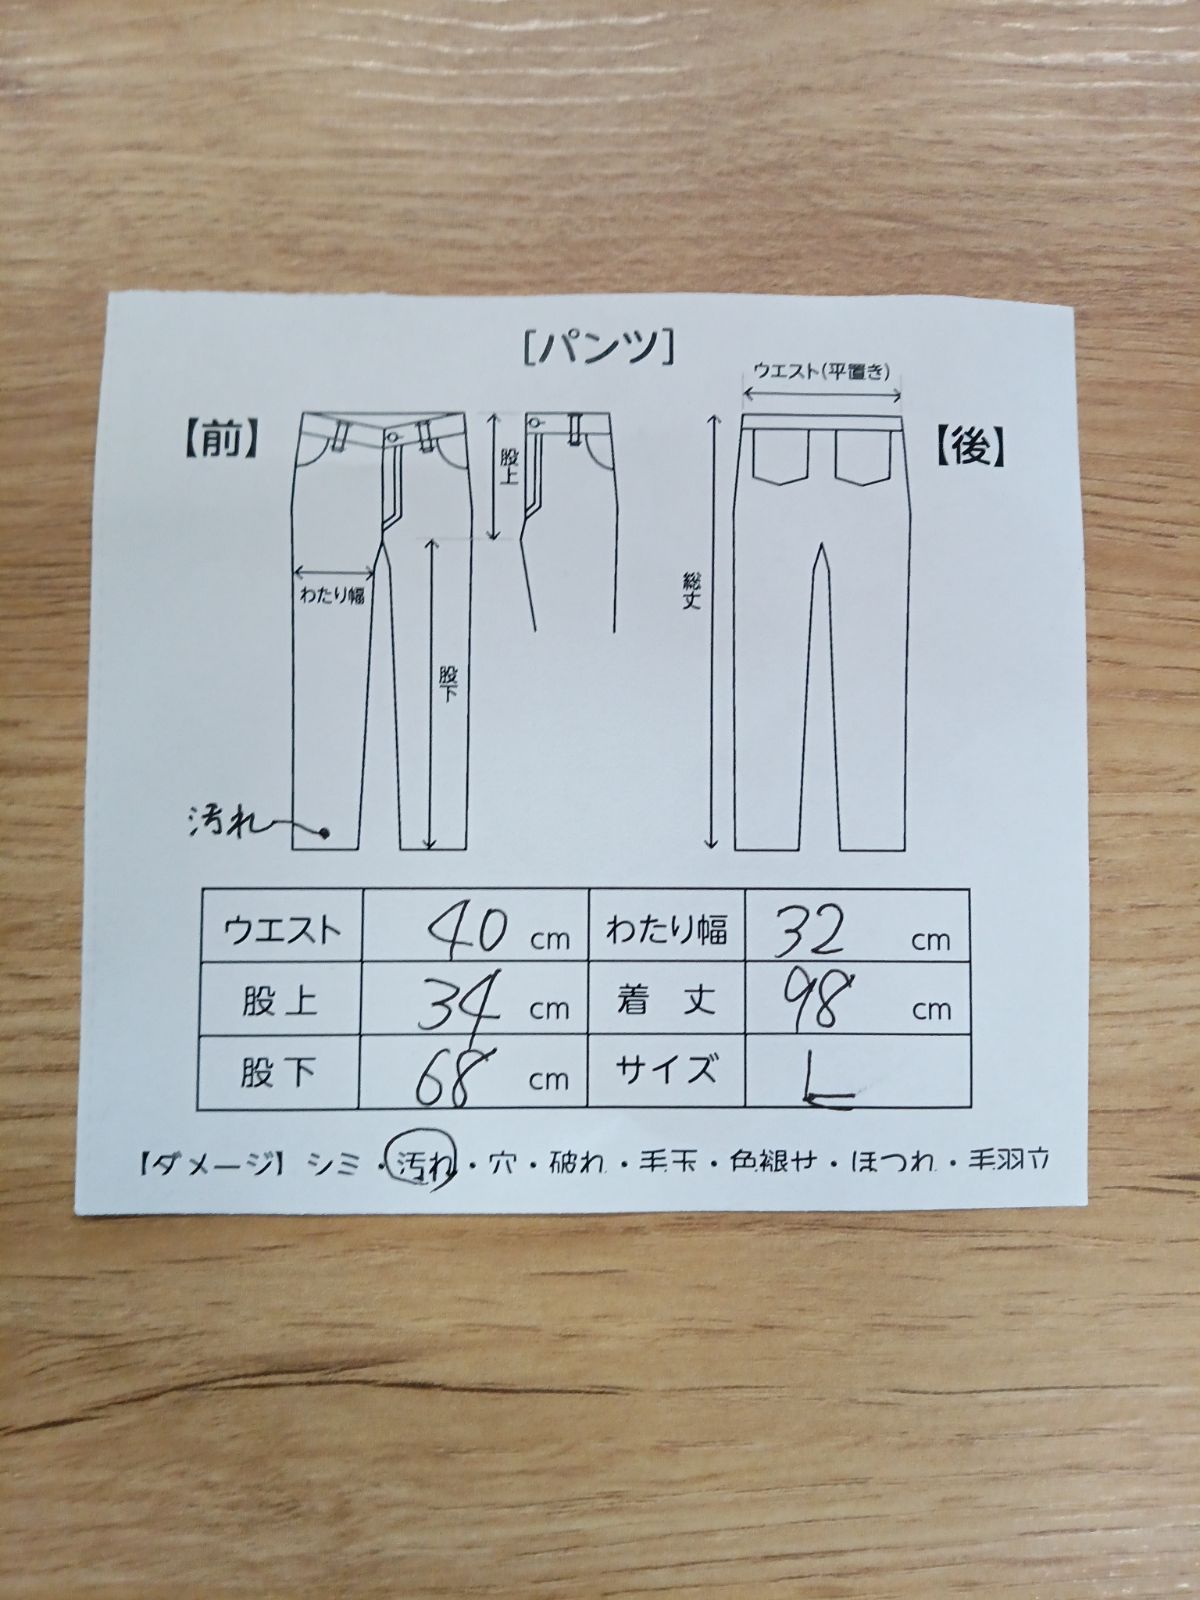 [パンツ]
ウエスト(平置き)
【前】
【後】
股上
わたり幅
総丈
股下
汚れ
ウエスト 40 cm わたり幅 32 cm
股上 34 cm 着丈 98 cm
股下 68 cm サイズ L
【ダメージ】シミ・汚れ・穴・破れ・毛玉・色褪せ・ほつれ・毛羽立